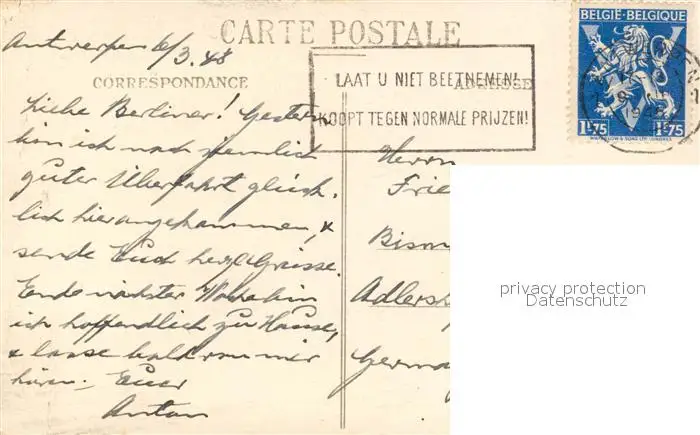 CARTE POSTALE
BELGIË-BELGIQUE
Antwerpen 6/3.48
LAAT U NIET BEETNEMEN!
KOOPT TEGEN NORMALE PRIJZEN!
CORRESPONDANCE
ADRESSE
1F75 1F75
WATERLOW & SONS LTD. LONDRES
Liebe Berliner! Gestern
bin ich nach ziemlich
guter Überfahrt glück-
lich hier angekommen, &
sende Euch herzl. Grüsse.
Ende nächster Woche bin
ich hoffendlich zu Hause,
& lasse bald von mir
hören. Euer
Anton
Herrn
Frie
Bism
Adlersh
Germa
privacy protection
Datenschutz